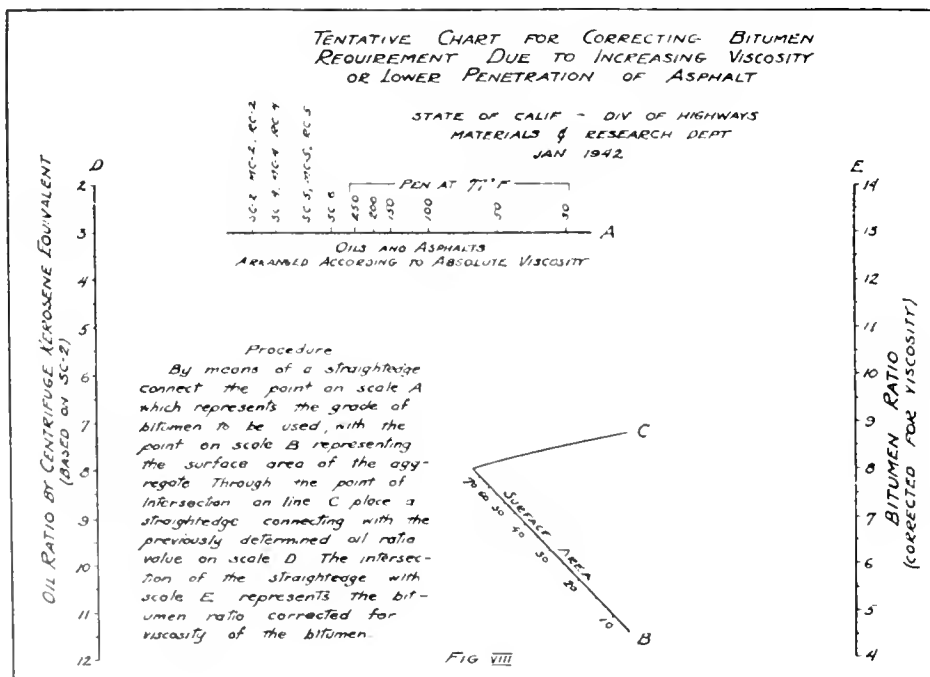 TENTATIVE CHART FOR CORRECTING BITUMEN
REQUIREMENT DUE TO INCREASING VISCOSITY
OR LOWER PENETRATION OF ASPHALT
STATE OF CALIF - DIV OF HIGHWAYS
MATERIALS & RESEARCH DEPT
JAN 1942
D
2
3
4
5
6
7
8
9
10
11
12
OIL RATIO BY CENTRIFUGE KEROSENE EQUIVALENT
(BASED ON SC-2)
SC-2 MC-2, RC-2
SC 4, MC-4 RC 4
SC 5, MC-5, RC 5
SC 6
PEN AT 77°F
250
200
150
100
50
30
A
OILS AND ASPHALTS
ARRANGED ACCORDING TO ABSOLUTE VISCOSITY
Procedure
By means of a straightedge
connect the point on scale A
which represents the grade of
bitumen to be used, with the
point on scale B representing
the surface area of the agg-
regate Through the point of
intersection on line C place a
straightedge connecting with the
previously determined oil ratio
value on scale D The intersec-
tion of the straightedge with
scale E represents the bit-
umen ratio corrected for
viscosity of the bitumen
C
70
60
50
40
30
20
10
SURFACE AREA
B
E
14
13
12
11
10
9
8
7
6
5
4
BITUMEN RATIO
(CORRECTED FOR VISCOSITY)
FIG VIII